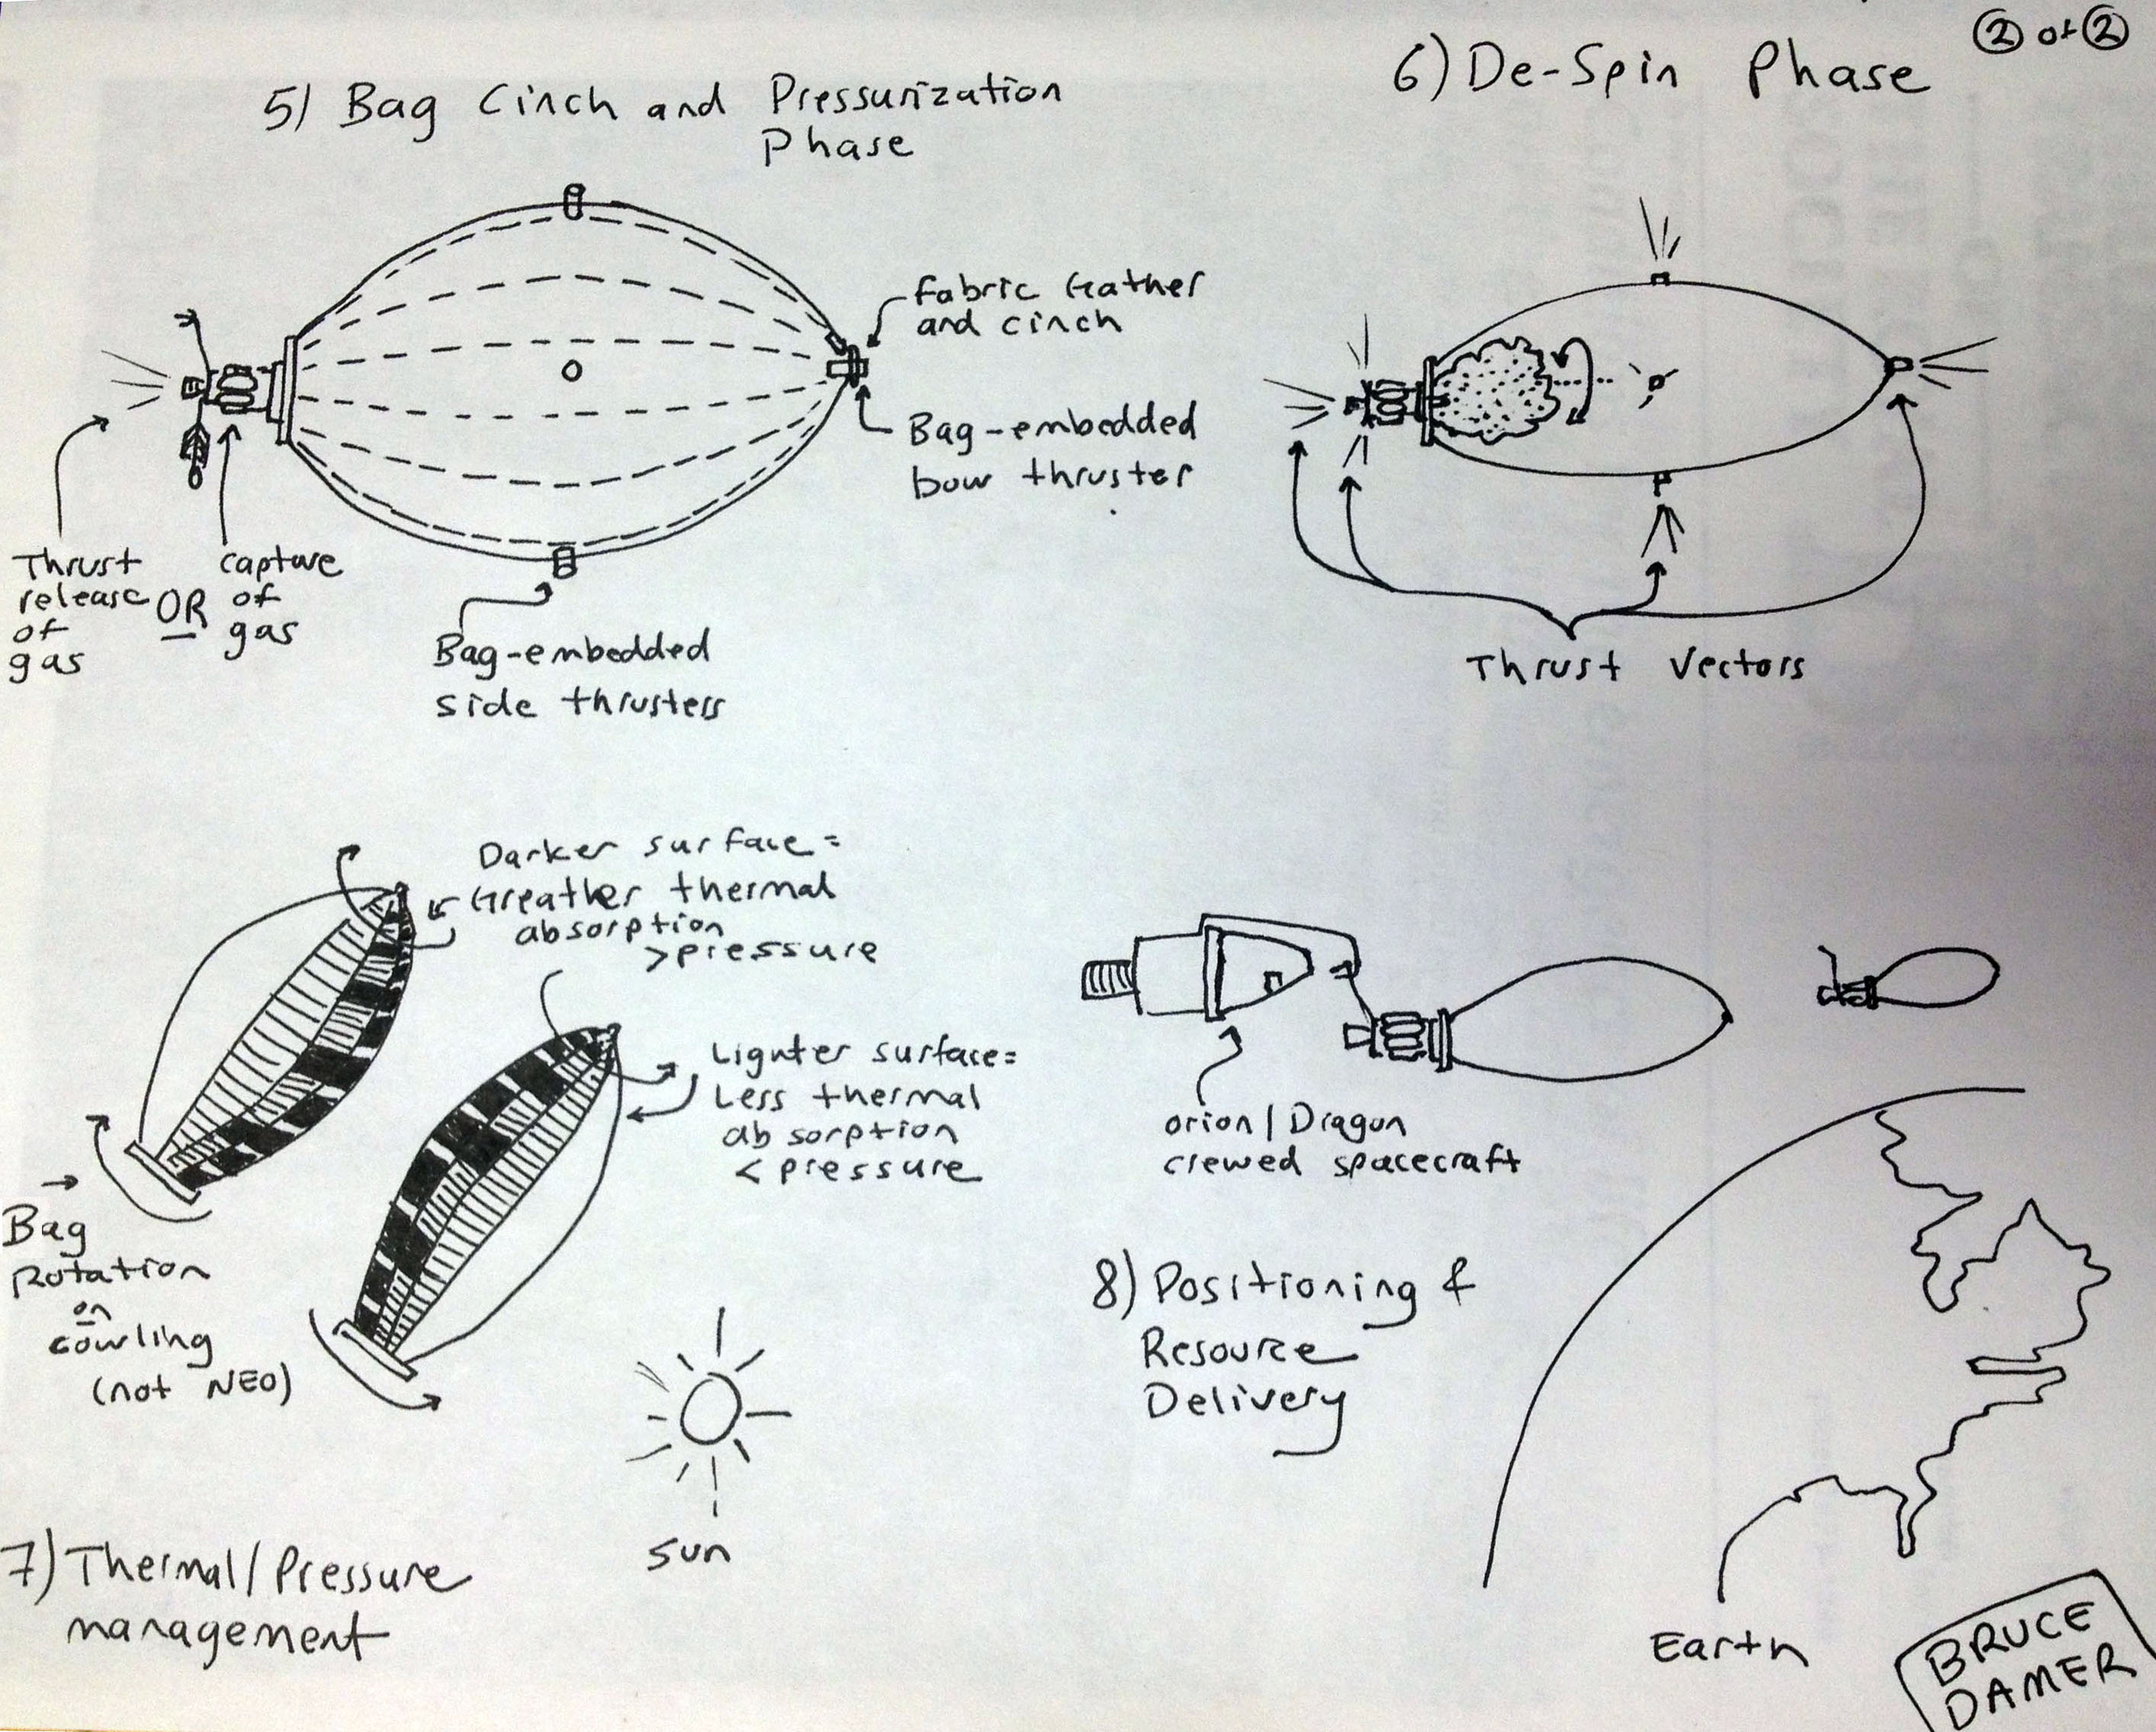 ② of ②
5) Bag Cinch and Pressurization
Phase
Fabric Gather
and cinch
Bag-embedded
bow thruster
Thrust
release
of
gas
OR
capture
of
gas
Bag-embedded
side thrusters
6) De-Spin Phase
Thrust Vectors
Darker surface =
Greather thermal
absorption
>pressure
Lighter surface=
Less thermal
absorption
< pressure
Bag
Rotation
on
cowling
(not NEO)
sun
7) Thermal/Pressure
management
orion/Dragon
crewed spacecraft
8) Positioning &
Resource
Delivery
Earth
BRUCE
DAMER